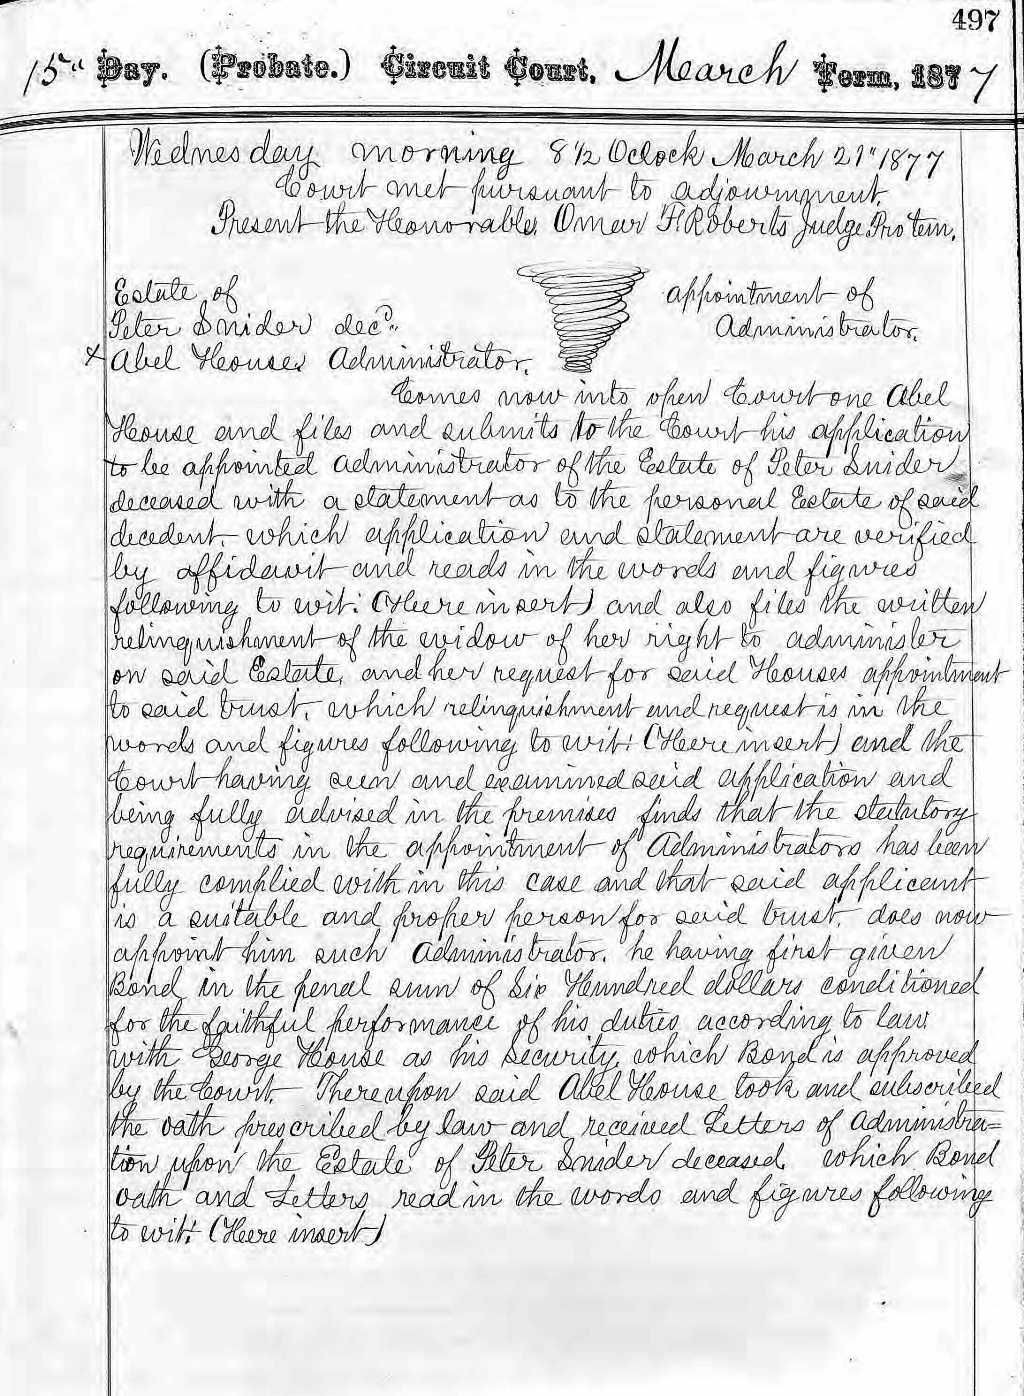 497
15" Day. (Probate.) Circuit Court, March Term, 1877
Wednesday morning 8 1/2 Oclock March 21" 1877
Court met pursuant to adjournment.
Present the Honorable Omar F. Roberts Judge Pro tem.
Estate of
Peter Snider decd.
x Abel House Administrator.
appointment of
Administrator.
Comes now into open Court one Abel
House and files and submits to the Court his application
to be appointed administrator of the Estate of Peter Snider
deceased with a statement as to the personal Estate of said
decedent which application and statement are verified
by affidavit and reads in the words and figures
following to wit: (Here insert) and also files the written
relinquishment of the widow of her right to administer
on said Estate, and her request for said Houses appointment
to said trust, which relinquishment and request is in the
words and figures following to wit: (Here insert) and the
Court having seen and examined said application and
being fully advised in the premises finds that the statutory
requirements in the appointment of Administrators has been
fully complied with in this case and that said applicant
is a suitable and proper person for said trust. does now
appoint him such Administrator. he having first given
Bond in the penal sum of Six Hundred dollars conditioned
for the faithful performance of his duties according to law
with George House as his security, which Bond is approved
by the Court. Thereupon said Abel House took and subscribed
the oath prescribed by law and received Letters of Administra=
tion upon the Estate of Peter Snider deceased. which Bond
oath and Letters read in the words and figures following
to wit: (Here insert)